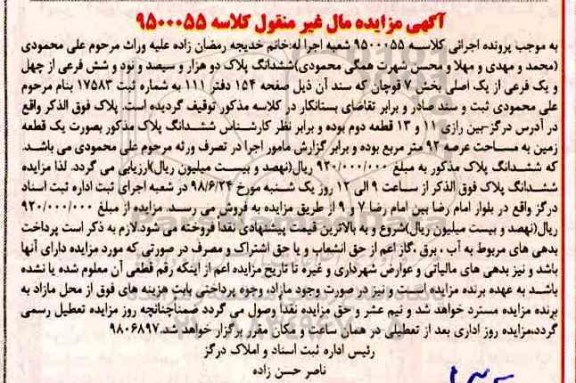 آگهی مزایده مال غیر منقول کلاسه ۹۵۰۰۰۵۵
به موجب پرونده اجرائی کلاسه ۹۵۰۰۰۵۵ شعبه اجرا له:خانم خدیجه رمضان زاده علیه وراث مرحوم علی محمودی
(محمد و مهدی و مهلا و محسن شهرت همگی محمودی)ششدانگ پلاک دو هزار و سیصد و نود و شش فرعی از چهل
و یک فرعی از یک اصلی بخش ۷ قوچان که سند آن ذیل صفحه ۱۵۴ دفتر ۱۱۱ به شماره ثبت ۱۷۵۸۳ بنام مرحوم
علی محمودی ثبت و سند صادر و برابر تقاضای بستانکار در کلاسه مذکور توقیف گردیده است. پلاک فوق الذکر واقع
در آدرس درگز-بین رازی ۱۱ و ۱۳ قطعه دوم بوده و برابر نظر کارشناس ششدانگ پلاک مذکور بصورت یک قطعه
زمین به مساحت عرصه ۹۲ متر مربع بوده و برابر گزارش مامور اجرا در تصرف ورثه مرحوم علی محمودی می باشد.
که ششدانگ پلاک مذکور به مبلغ ۹۲۰/۰۰۰/۰۰۰ ریال(نهصد و بیست میلیون ریال)ارزیابی می گردد. لذا مزایده
ششدانگ پلاک فوق الذکر از ساعت ۹ الی ۱۲ روز یک شنبه مورخ ۹۸/۶/۲۴ در شعبه اجرای ثبت اداره ثبت اسناد
درگز واقع در بلوار امام رضا بین امام رضا ۷ و ۹ از طریق مزایده به فروش می رسد. مزایده از مبلغ ۹۲۰/۰۰۰/۰۰۰
ریال(نهصد و بیست میلیون ریال)شروع و به بالاترین قیمت پیشنهادی نقدا فروخته می شود.لازم به ذکر است پرداخت
بدهی های مربوط به آب ، برق ،گاز اعم از حق انشعاب و یا حق اشتراک و مصرف در صورتی که مورد مزایده دارای آنها
باشد و نیز بدهی های مالیاتی و عوارض شهرداری و غیره تا تاریخ مزایده اعم از اینکه رقم قطعی آن معلوم شده یا نشده
باشد به عهده برنده مزایده است و نیز در صورت وجود مازاد، وجوه پرداختی بابت هزینه های فوق از محل مازاد به
برنده مزایده مسترد خواهد شد و نیم عشر و حق مزایده نقدا وصول می گردد ضمناچنانچه روز مزایده تعطیل رسمی
گردد،مزایده روز اداری بعد از تعطیلی در همان ساعت و مکان مقرر برگزار خواهد شد.۹۸۰۶۸۹۷
رئیس اداره ثبت اسناد و املاک درگز
ناصر حسن زاده